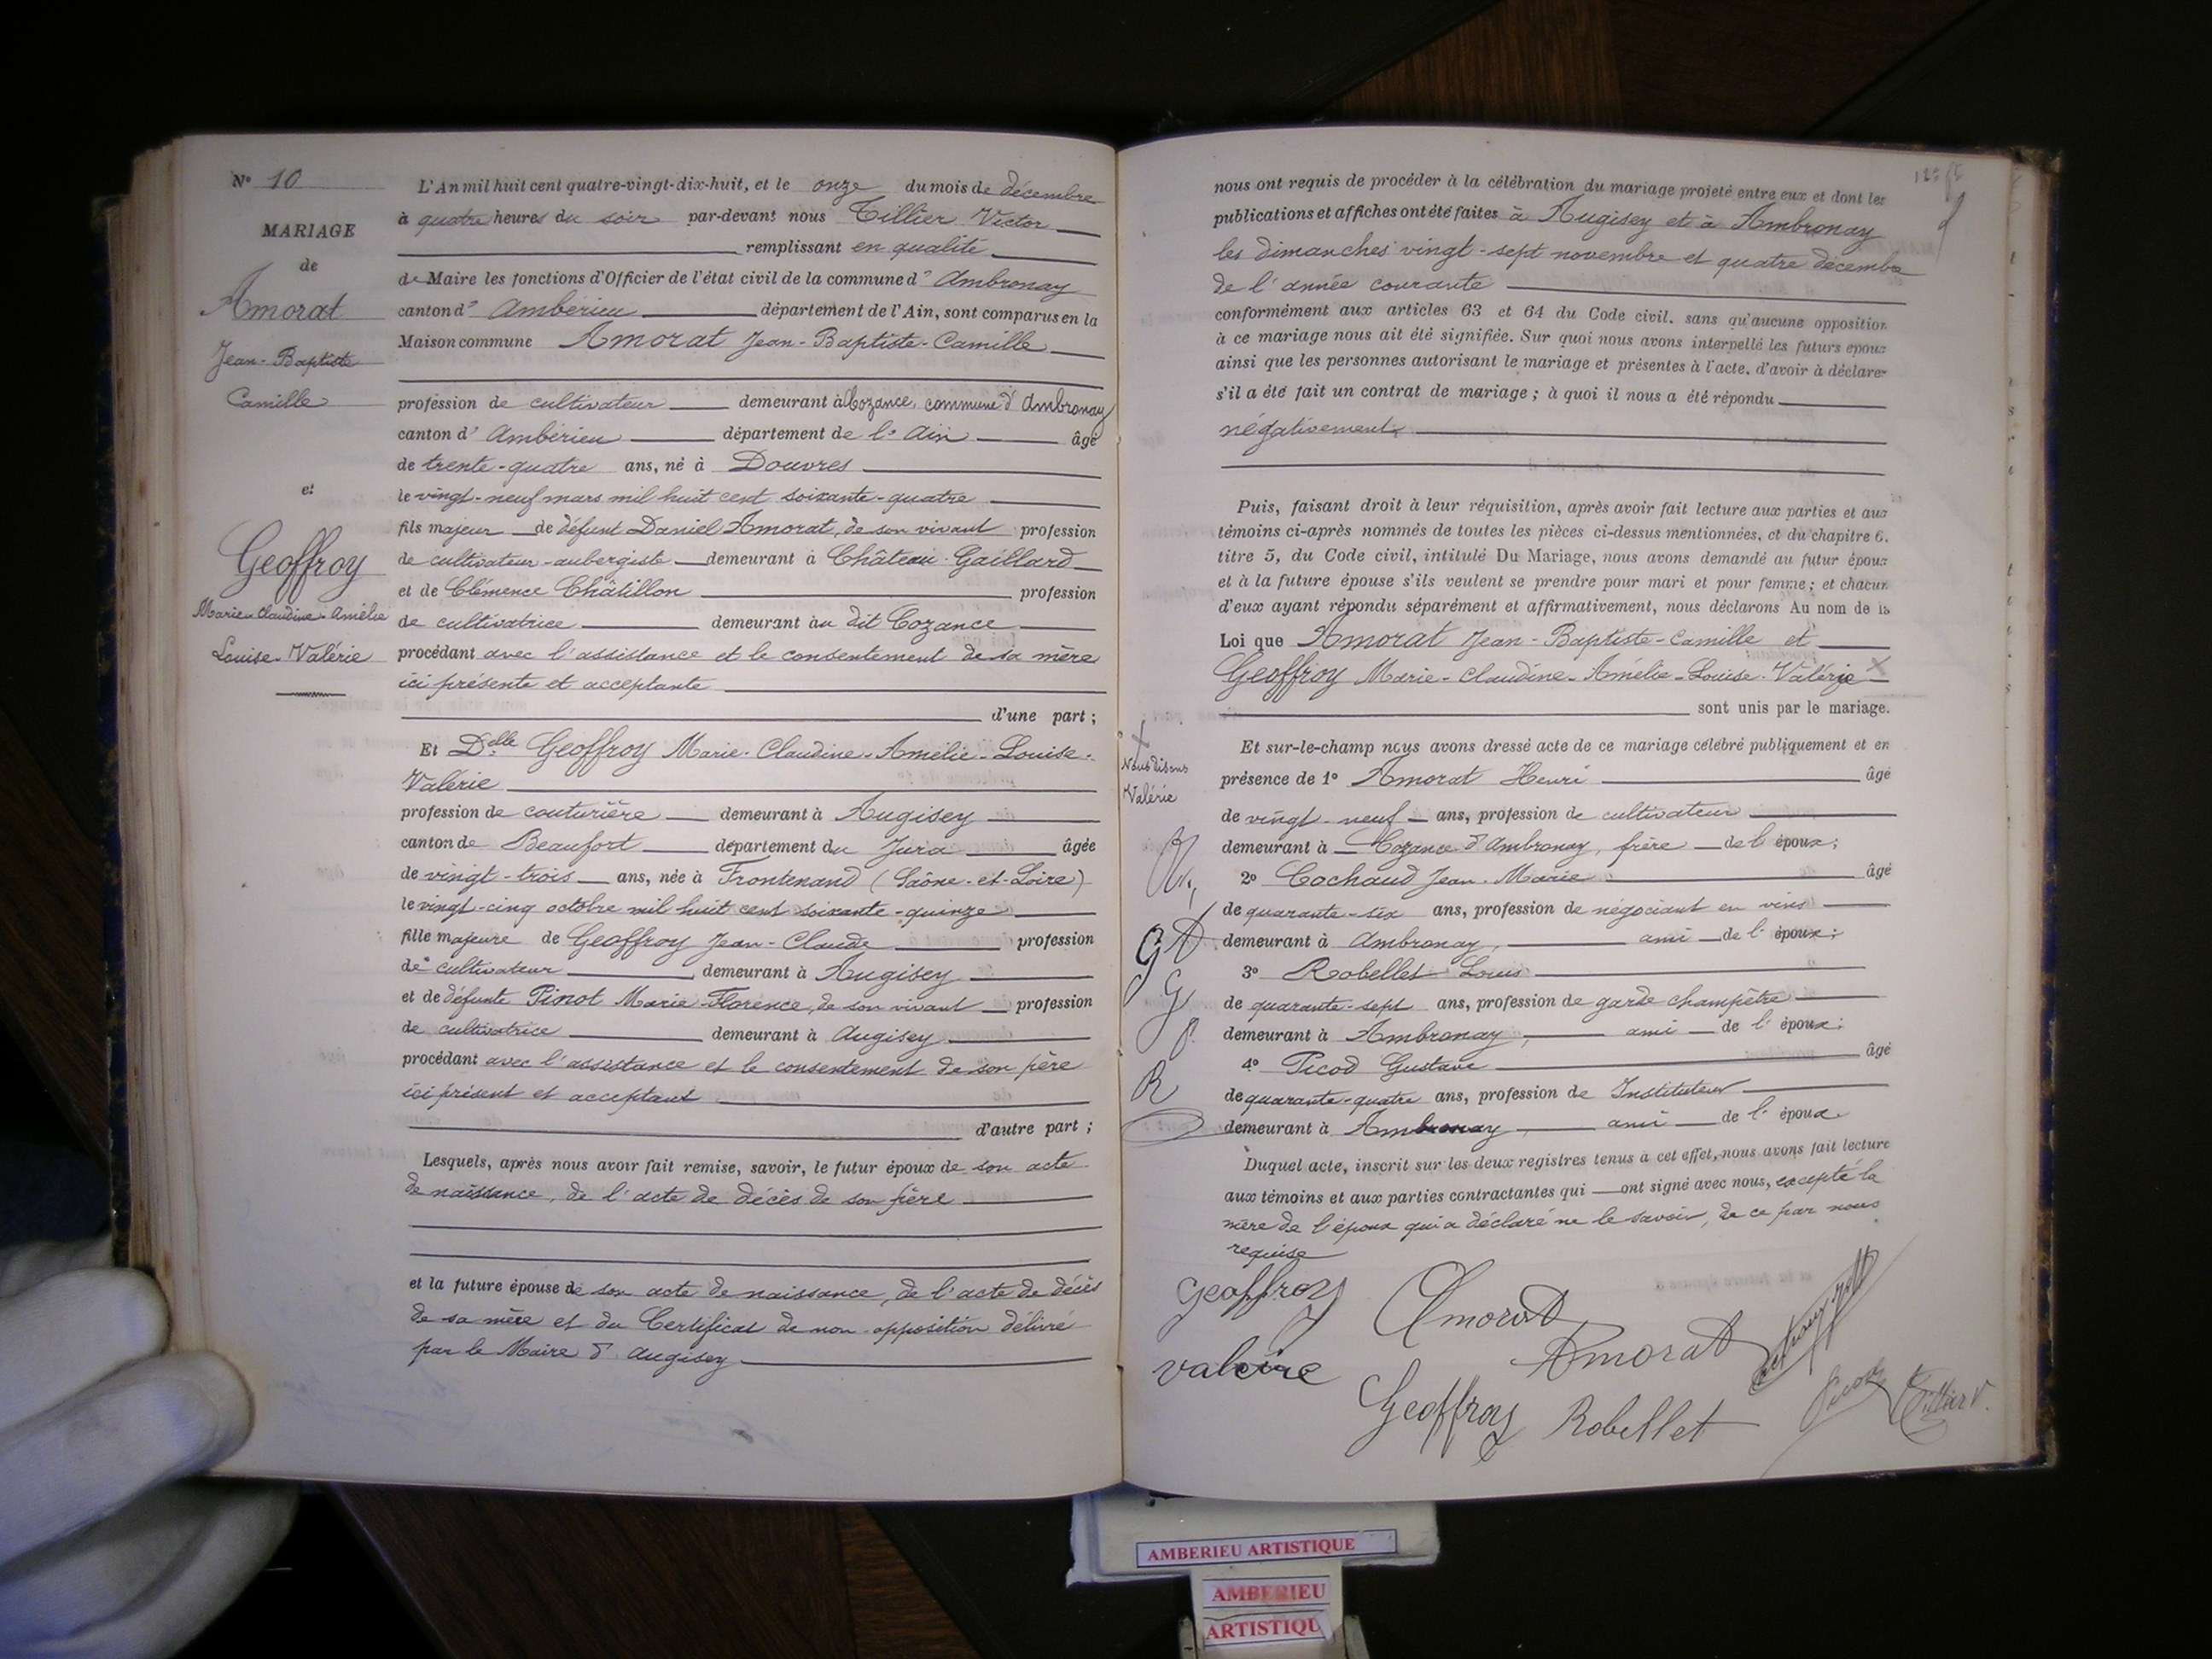 N° 10
MARIAGE
de
Amorat
Jean-Baptiste
Camille
et
Geoffroy
Marie-Claudine-Amélie
Louise-Valérie
L'An mil huit cent quatre-vingt-dix-huit, et le onze du mois de décembre
à quatre heures du soir par-devant nous Tillier Victor
remplissant en qualité
de Maire les fonctions d'Officier de l'état civil de la commune d' Ambronay
canton d' Ambérieu département de l'Ain, sont comparus en la
Maison commune Amorat Jean-Baptiste-Camille
profession de cultivateur demeurant à Cozance, commune d'Ambronay
canton d' Ambérieu département de l'Ain âgé
de trente-quatre ans, né à Douvres
le vingt-neuf mars mil huit cent soixante-quatre
fils majeur de défunt Daniel Amorat, de son vivant profession
de cultivateur-aubergiste demeurant à Château-Gaillard
et de Clémence Châtillon profession
de cultivatrice demeurant au dit Cozance
procédant avec l'assistance et le consentement de sa mère
ici présente et acceptante
d'une part ;
Et Delle Geoffroy Marie-Claudine-Amélie-Louise-
Valérie
profession de couturière demeurant à Augisey
canton de Beaufort département du Jura âgée
de vingt-trois ans, née à Frontenand (Saône-et-Loire)
le vingt-cinq octobre mil huit cent soixante-quinze
fille majeure de Geoffroy Jean-Claude profession
de cultivateur demeurant à Augisey
et de défunte Pinot Marie-Florence, de son vivant profession
de cultivatrice demeurant à Augisey
procédant avec l'assistance et le consentement de son père
ici présent et acceptant
d'autre part ;
Lesquels, après nous avoir fait remise, savoir, le futur époux de son acte
de naissance, de l'acte de décès de son père
et la future épouse de son acte de naissance, de l'acte de décès
de sa mère et du Certificat de non-opposition délivré
par le Maire d'Augisey
nous ont requis de procéder à la célébration du mariage projeté entre eux et dont les
publications et affiches ont été faites à Augisey et à Ambronay
les dimanches vingt-sept novembre et quatre décembre
de l'année courante
conformément aux articles 63 et 64 du Code civil, sans qu'aucune opposition
à ce mariage nous ait été signifiée. Sur quoi nous avons interpellé les futurs époux
ainsi que les personnes autorisant le mariage et présentes à l'acte, d'avoir à déclarer
s'il a été fait un contrat de mariage ; à quoi il nous a été répondu
négativement
Puis, faisant droit à leur réquisition, après avoir fait lecture aux parties et aux
témoins ci-après nommés de toutes les pièces ci-dessus mentionnées, et du chapitre 6,
titre 5, du Code civil, intitulé Du Mariage, nous avons demandé au futur époux
et à la future épouse s'ils veulent se prendre pour mari et pour femme ; et chacun
d'eux ayant répondu séparément et affirmativement, nous déclarons Au nom de la
Loi que Amorat Jean-Baptiste-Camille et
Geoffroy Marie-Claudine-Amélie-Louise-Valérie X
sont unis par le mariage.
X
Nous disons
Valérie
Et sur-le-champ nous avons dressé acte de ce mariage célébré publiquement et en
présence de 1° Amorat Henri âgé
de vingt-neuf ans, profession de cultivateur
demeurant à Cozance d'Ambronay, frère de l'époux ;
2° Cochaud Jean-Marie âgé
de quarante-six ans, profession de négociant en vins
demeurant à Ambronay, ami de l'époux ;
3° Robellet Louis
de quarante-sept ans, profession de garde champêtre
demeurant à Ambronay, ami de l'époux ;
4° Picod Gustave âgé
de quarante-quatre ans, profession de Instituteur
demeurant à Ambronay, ami de l'époux
Duquel acte, inscrit sur les deux registres tenus à cet effet, nous avons fait lecture
aux témoins et aux parties contractantes qui ont signé avec nous, excepté la
mère de l'époux qui a déclaré ne le savoir, de ce par nous
requise
Geoffroy
Amorat
Amorat
valeire
Geoffroy
Robellet
Picod
Tillier V.
AMBERIEU ARTISTIQUE
AMBERIEU
ARTISTIQU